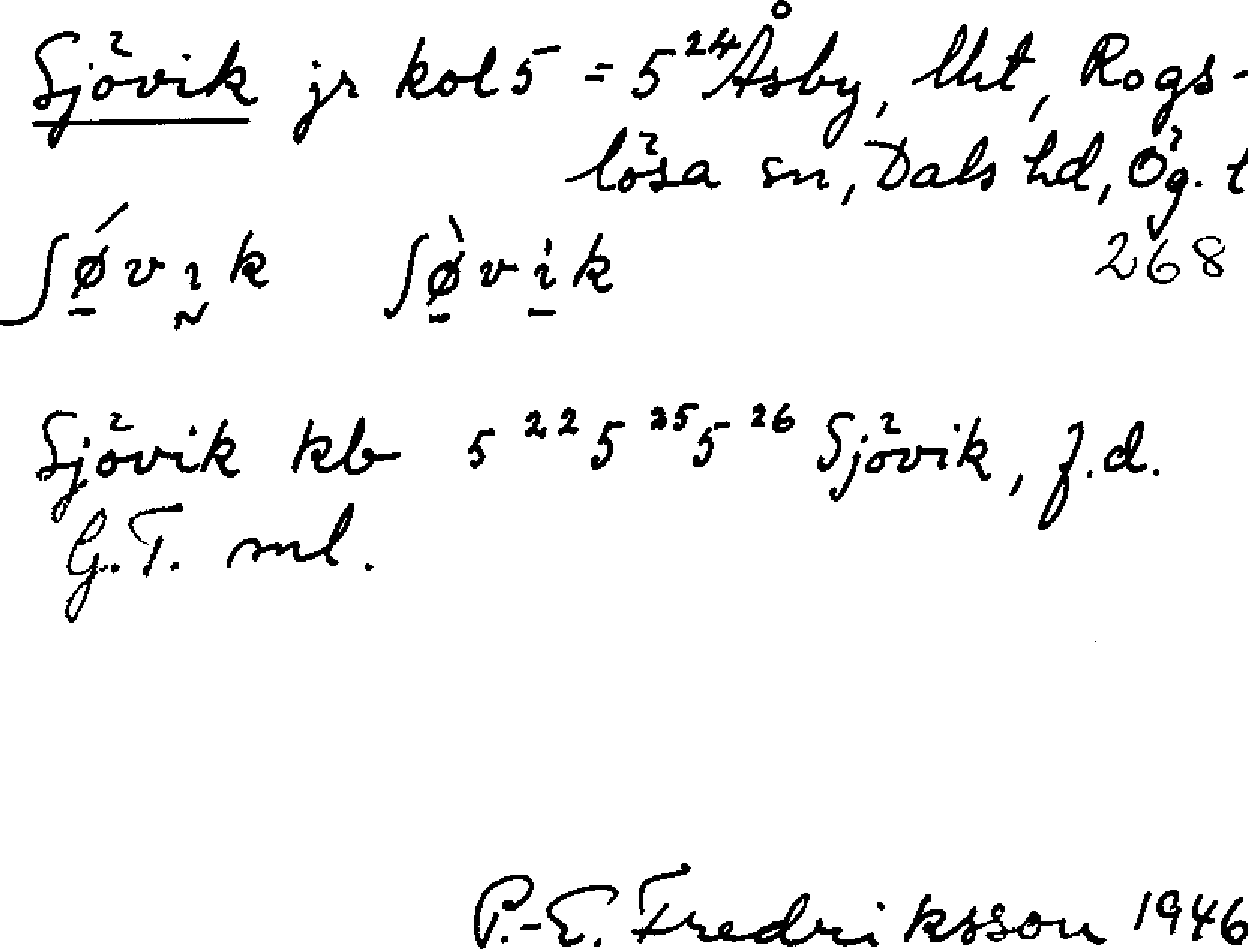 Sjövik jr kol 5 = 5²⁴ Åsby, Uht, Rogs-
lösa sn, Dals hd, Ög. l
ʃǿvık ʃø̀vik 268
Sjövik kb 5²² 5²⁵ 5²⁶ Sjövik, f.d.
G.T. ml.
P.-E. Fredriksson 1946